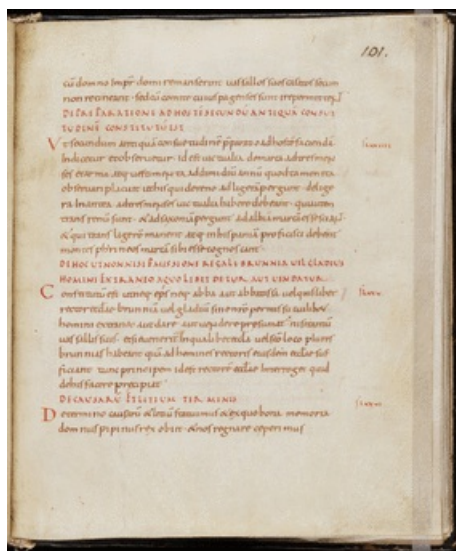 101.
cū domno impr̄ domi remanserint uassallos suos casatos secum
non retineant sed cū comite cuius pagenses sunt ire permittat
DE PRAEPARATIONE AD HOSTĒ SECUNDŪ ANTIQUA CONSUE
TUDINĒ CONSTITUTU EST
Ut secundum antiquā consuetudinē pparatio ad hostē faciendā
indiceret et obseruetur id est uictualia de marca ad tres men
ses et arma atq; uestimenta ad dimidiū annū quod tamen ita
obseruari placuit ut his qui de reno ad ligerē pergunt de lige
ra initiū ad tres menses uictualia habere debeant qui autem
trans renū sunt & ad saxoniā pergunt ad albiā marcā esse sciant
& qui trans ligerē manent atq; in hispaniā proficisci debent
montes pirineos marcā sibi esse cognoscant
DE HOC UT NON NISI PMISSIONE REGALI BRUNNIA UEL GLADIUS
HOMINI EXTRANEO A QUOLIBET DETUR AUT UENDATUR
Constitutū est ut neq; ep̄s neq; abba aut abbatissa uel quislibet
rector aecclae brunniā uel gladiū sine nr̄o permissu cuilibet
homini extraneo aut dare aut uendere presumat nisi tantū
uassallis suis et si euenerit in qualibet aeccla uel sc̄o loco plures
brunnias habeant quā ad homines rectores eiusdem aecclae suf
ficiant tunc principem idē rector aecclae interroget quid
de his facere precipiat
DE CAUSARŪ & LITIUM TERMINO
De termino causarū & litiū statuimus ut ex quo bonæ memoriæ
domnus pipinus rex obiit & nos regnare coepimus